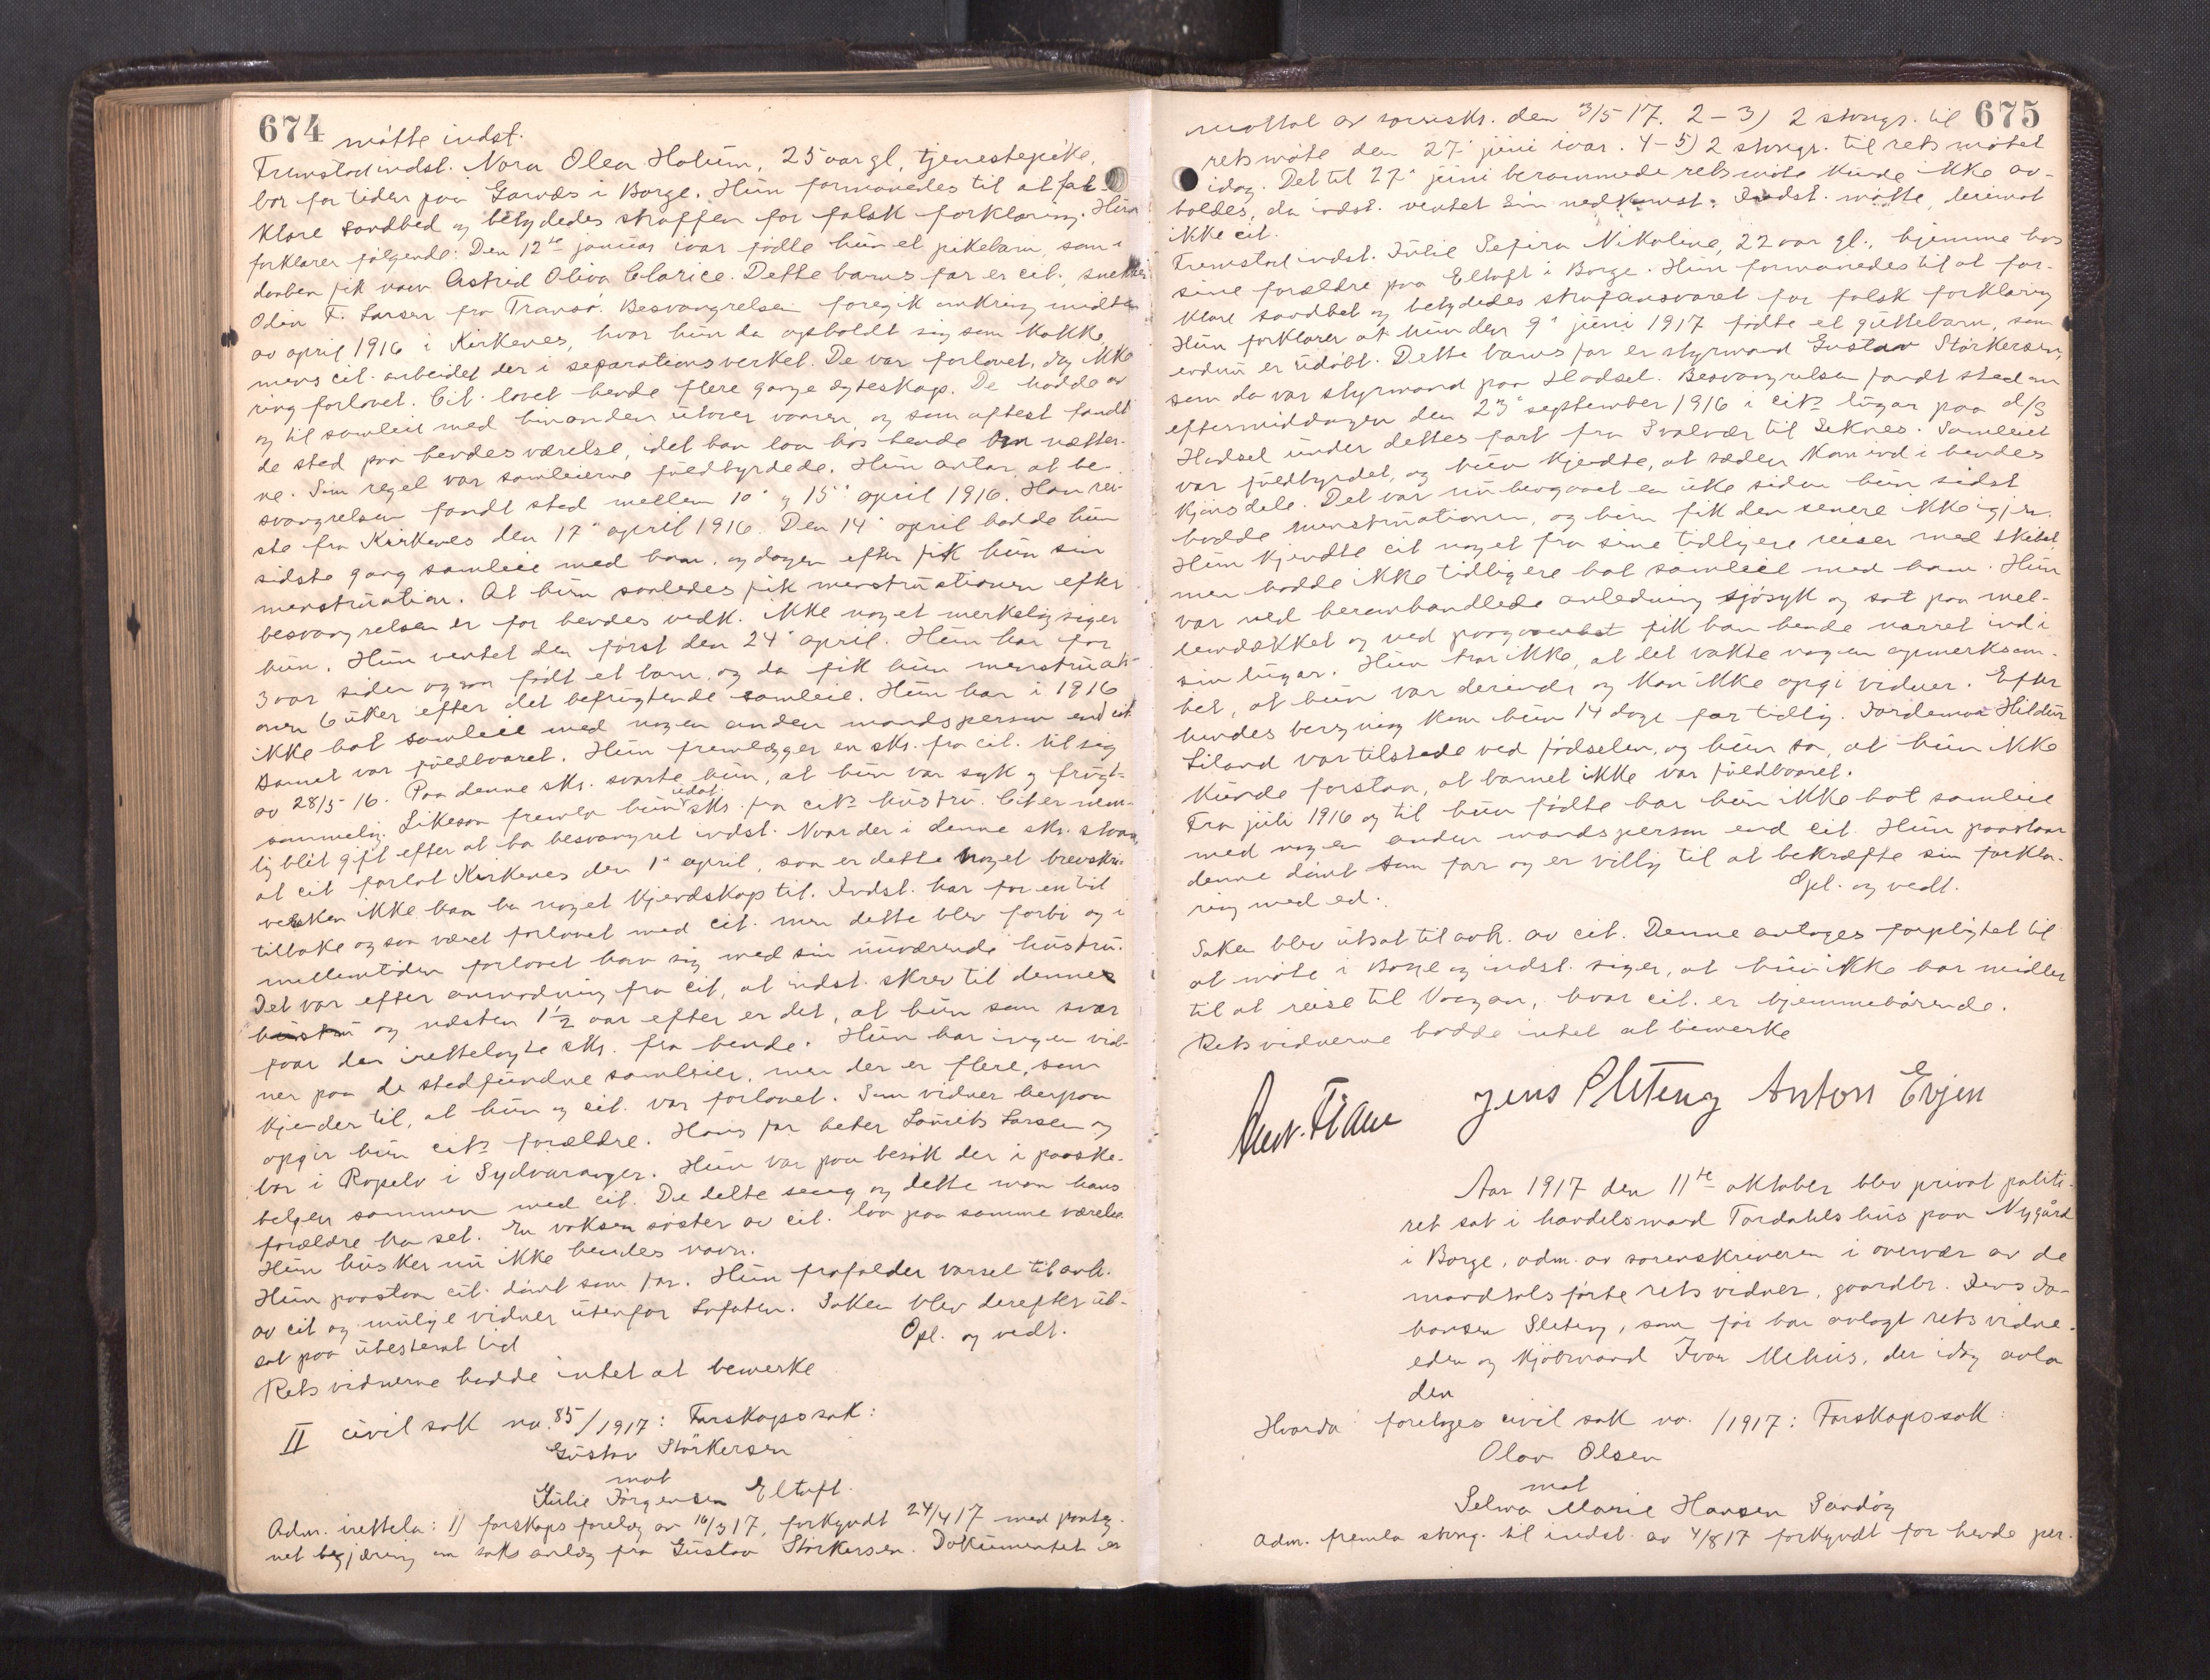 674
møtte indst.
Fremstod indst. Nora Olea Holum, 25 aar gl, tjenestepike,
bor for tiden paa Garnæs i Borge. Hun formanedes til at for-
klare sandhed og betydedes straffen for falsk forklaring. Hun
forklarer følgende: Den 12te januar iaar fødte hun et pikebarn, som i
daaben fik navn Astrid Oliva Clarice. Dette barns far er cit.,
Odin F. Larsen fra Tromsø. Besvangrelsen foregik omkring midten
av april 1916 i Kirkenes, hvor hun da opholdt sig som kokke,
mens cit. arbeidet der i separationsverket. De var forlovet, dog ikke
ring forlovet. Cit. lovet hende flere gange egteskap. De hadde av
og til samleie med hinanden utover vaaren og som oftest fandt
de sted paa hendes værelse, idet han laa hos hende om nætter-
ne. Som regel var samleierne fuldbyrdede. Hun antar at be-
svangrelsen fandt sted mellem 10' og 15' april 1916. Han rei-
ste fra Kirkenes den 17' april 1916. Den 14' april hadde hun
sidste gang samleie med ham, og dagen efter fik hun sin
menstruation. At hun saaledes fik menstruationen efter
besvangrelsen er for hendes vedk. ikke noget merkelig siger
hun. Hun ventet den først den 24' april. Hun har for
3 aar siden ogsaa født et barn, og da fik hun menstruati-
onen 6 uker efter det befrugtende samleie. Hun har i 1916
ikke hat samleie med nogen anden mandsperson end cit.
Barnet var fuldbaaret. Hun fremlægger en skr. fra cit. til sig
av 28/5-16. Paa denne skr. svarte hun, at hun var syk og frugt-
sommelig. Likesaa fremla hun udat. skr. fra cits hustru. Cit er nem-
lig blit gift efter at ha besvangret indst. Naar der i denne skr. staar,
at cit forlot Kirkenes den 1' april, saa er dette noget brevskri-
versken ikke kan ha noget kjendskap til. Indst. har for en tid
tilbake ogsaa været forlovet med cit. men dette blev forbi og i
mellemtiden forlovet han sig med sin nuværende hustru.
Det var efter anmodning fra cit, at indst. skrev til dennes
hustru og næsten 1 1/2 aar efter er det, at hun som svar
faar den irettelagte skr. fra hende. Hun har ingen vid-
ner paa de stedfundne samleier, men der er flere, som
kjender til, at hun og cit. var forlovet. Som vidner herpaa
opgir hun cits forældre. Hans far heter Laurits Larsen og
bor i Ropelv i Sydvaranger. Hun var paa besøk der i paaske-
helgen sammen med cit. De delte seng og dette maa hans
forældre ha set. En voksen søster av cit. laa paa samme værelse.
Hun husker nu ikke hendes navn.
Hun paastaar cit. dømt som far. Hun frafalder varsel til avh.
av cit og mulige vidner utenfor Lofoten. Saken blev derefter ut-
sat paa ubestemt tid
Opl. og vedt.
Retsvidnerne hadde intet at bemerke
II civil sak no. 85/1917: Farskapssak:
Gustav Størkersen
mot
Julie Jørgensen Eltoft.
Adm. irettela: 1) farskapsforelæg av 16/3 17, forkyndt 24/4 17 med paateg-
net begjæring om saksanlæg fra Gustav Størkersen. Dokumentet er
675
mottat av sorenskr. den 3/5 17. 2-3) 2 stevngr. til
retsmøte den 27' juni iaar. 4-5) 2 stevngr. til retsmøtet
idag. Det til 27' juni berammede retsmøte kunde ikke av-
holdes, da indst. ventet sin nedkomst. Indst. møtte, derimot
ikke cit.
Fremstod indst. Julie Sefira Nikoline, 22 aar gl., hjemme hos
sine forældre paa Eltoft i Borge. Hun formanedes til at for-
klare sandhet og betydedes strafansvaret for falsk forklaring
Hun forklarer at hun den 9' juni 1917 fødte et guttebarn, som
endnu er udøbt. Dette barns far er styrmand Gustav Størkersen,
som da var styrmand paa Hadsel. Besvangrelsen fandt sted om
eftermiddagen den 23' september 1916 i cits lugar paa d/s
Hadsel under dettes fart fra Svolvær til Leknes. Samleiet
var fuldbyrdet, og hun kjendte, at sæden kom ind i hendes
kjønsdele. Det var nu hengaaet en uke siden hun sidst
hadde menstruationen, og hun fik den senere ikke igjen.
Hun kjendte cit noget fra sine tidligere reiser med skibet,
men hadde ikke tidligere hat samleie med ham. Hun
var ved heromhandlede anledning sjøsyk og sat paa mel-
lemdækket og ved fik han hende narret ind i
sin lugar. Hun tror ikke, at det vakte nogen opmerksom-
het, at hun var derinde og kan ikke opgi vidner. Efter
hendes beregning kom hun 14 dage for tidlig. Jordemor Hildur
Liland var tilstede ved fødselen, og hun sa, at hun ikke
kunde forstaa, at barnet ikke var fuldbaaret.
Fra juli 1916 og til hun fødte har hun ikke hat samleie
med nogen anden mandsperson end cit. Hun paastaar
denne dømt som far og er villig til at bekræfte sin forkla-
ring med ed.
Opl. og vedt.
Saken blev utsat til avh. av cit. Denne antages forpligtet til
at møte i Borge og indst. siger, at hun ikke har midler
til at reise til Vaagan, hvor cit. er hjemmehørende.
Retsvidnerne hadde intet at bemerke
Jens Sleteng Anton Evjen
Aar 1917 den 11te oktober blev privat politi-
ret sat i handelsmand Tordahls hus paa Nygård
i Borge, adm. av sorenskriveren i overvær av de
mandtalsførte retsvidner, gaardbr. Jens Jo-
hansen Sleteng, som før har avlagt retsvidne-
eden og kjøbmand Ivar Mehus, der idag avla
den
Hvorda foretoges civil sak no. /1917: Farskapssak:
Olav Olsen
mot
Selma Marie Hansen Sandøy
Adm. fremla stevng. til indst. av 4/8 17 forkyndt for hende per-